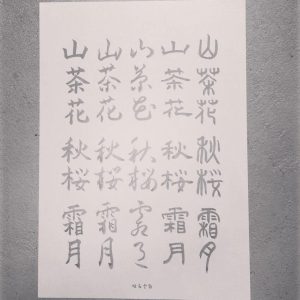 山茶花 秋桜 霜月
山茶花 秋桜 霜月
山茶花 秋桜 霜月
山茶花 秋桜 霜月
山茶花 秋桜 霜月